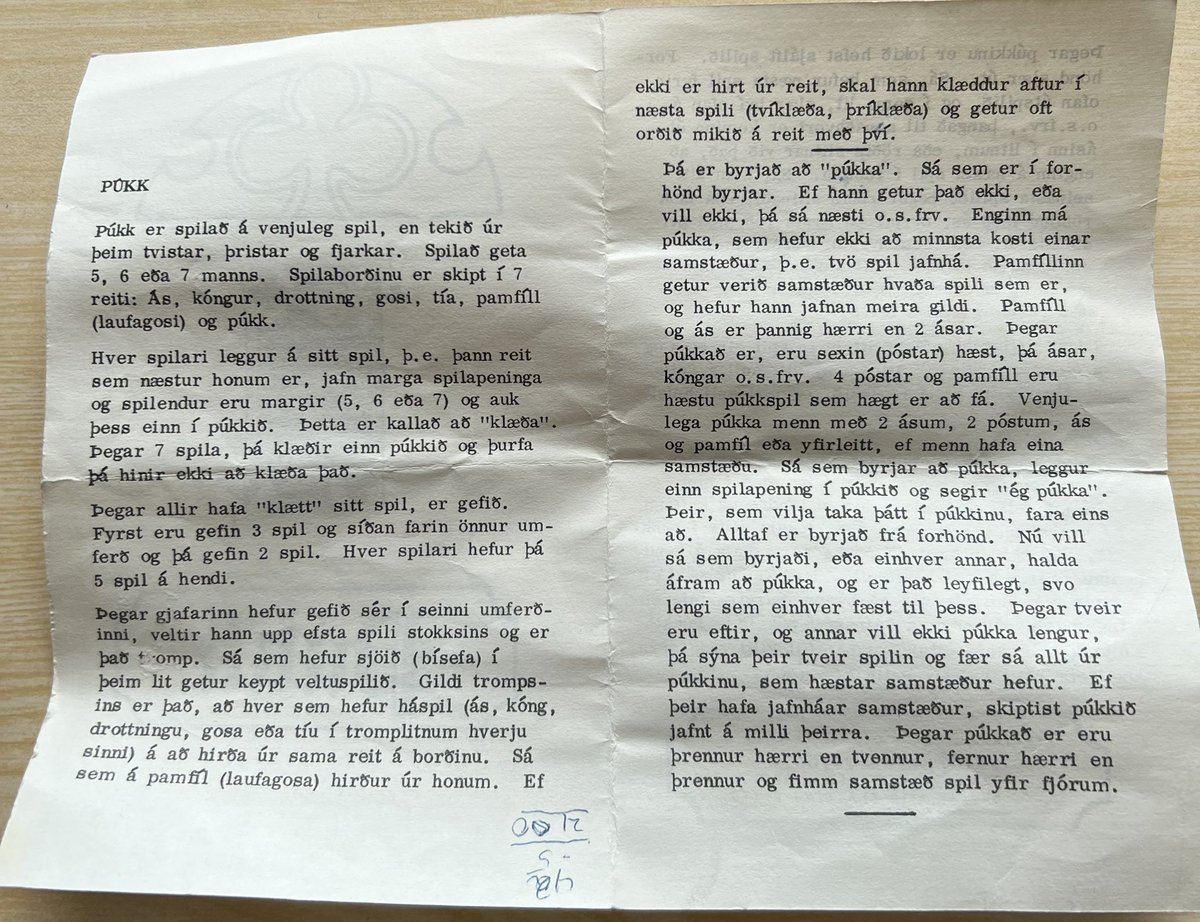 PÚKK
Púkk er spilað á venjuleg spil, en tekið úr
þeim tvistar, þristar og fjarkar. Spilað geta
5, 6 eða 7 manns. Spilaborðinu er skipt í 7
reiti: Ás, kóngur, drottning, gosi, tía, pamfíll
(laufagosi) og púkk.
Hver spilari leggur á sitt spil, þ.e. þann reit
sem næstur honum er, jafn marga spilapeninga
og spilendur eru margir (5, 6 eða 7) og auk
þess einn í púkkið. Þetta er kallað að "klæða".
Þegar 7 spila, þá klæðir einn púkkið og þurfa
þá hinir ekki að klæða það.
Þegar allir hafa "klætt" sitt spil, er gefið.
Fyrst eru gefin 3 spil og síðan farin önnur um-
ferð og þá gefin 2 spil. Hver spilari hefur þá
5 spil á hendi.
Þegar gjafarinn hefur gefið sér í seinni umferð-
inni, veltir hann upp efsta spili stokksins og er
það tromp. Sá sem hefur sjöið (bísefa) í
þeim lit getur keypt veltuspilið. Gildi tromps-
ins er það, að hver sem hefur háspil (ás, kóng,
drottningu, gosa eða tíu í tromplitnum hverju
sinni) á að hirða úr sama reit á borðinu. Sá
sem á pamfíl (laufagosa) hirður úr honum. Ef
ekki er hirt úr reit, skal hann klæddur aftur í
næsta spili (tvíklæða, þríklæða) og getur oft
orðið mikið á reit með því.
Þá er byrjað að "púkka". Sá sem er í for-
hönd byrjar. Ef hann getur það ekki, eða
vill ekki, þá sá næsti o.s.frv. Enginn má
púkka, sem hefur ekki að minnsta kosti einar
samstæður, þ.e. tvö spil jafnhá. Pamfíllinn
getur verið samstæður hvaða spili sem er,
og hefur hann jafnan meira gildi. Pamfíll
og ás er þannig hærri en 2 ásar. Þegar
púkkað er, eru sexin (póstar) hæst, þá ásar,
kóngar o.s.frv. 4 póstar og pamfíll eru
hæstu púkkspil sem hægt er að fá. Venju-
lega púkka menn með 2 ásum, 2 póstum, ás
og pamfíl eða yfirleitt, ef menn hafa eina
samstæðu. Sá sem byrjar að púkka, leggur
einn spilapening í púkkið og segir "ég púkka".
Þeir, sem vilja taka þátt í púkkinu, fara eins
að. Alltaf er byrjað frá forhönd. Nú vill
sá sem byrjaði, eða einhver annar, halda
áfram að púkka, og er það leyfilegt, svo
lengi sem einhver fæst til þess. Þegar tveir
eru eftir, og annar vill ekki púkka lengur,
þá sýna þeir tveir spilin og fær sá allt úr
púkkinu, sem hæstar samstæður hefur. Ef
þeir hafa jafnháar samstæður, skiptist púkkið
jafnt á milli þeirra. Þegar púkkað er eru
þrennur hærri en tvennur, fernur hærri en
þrennur og fimm samstæð spil yfir fjórum.